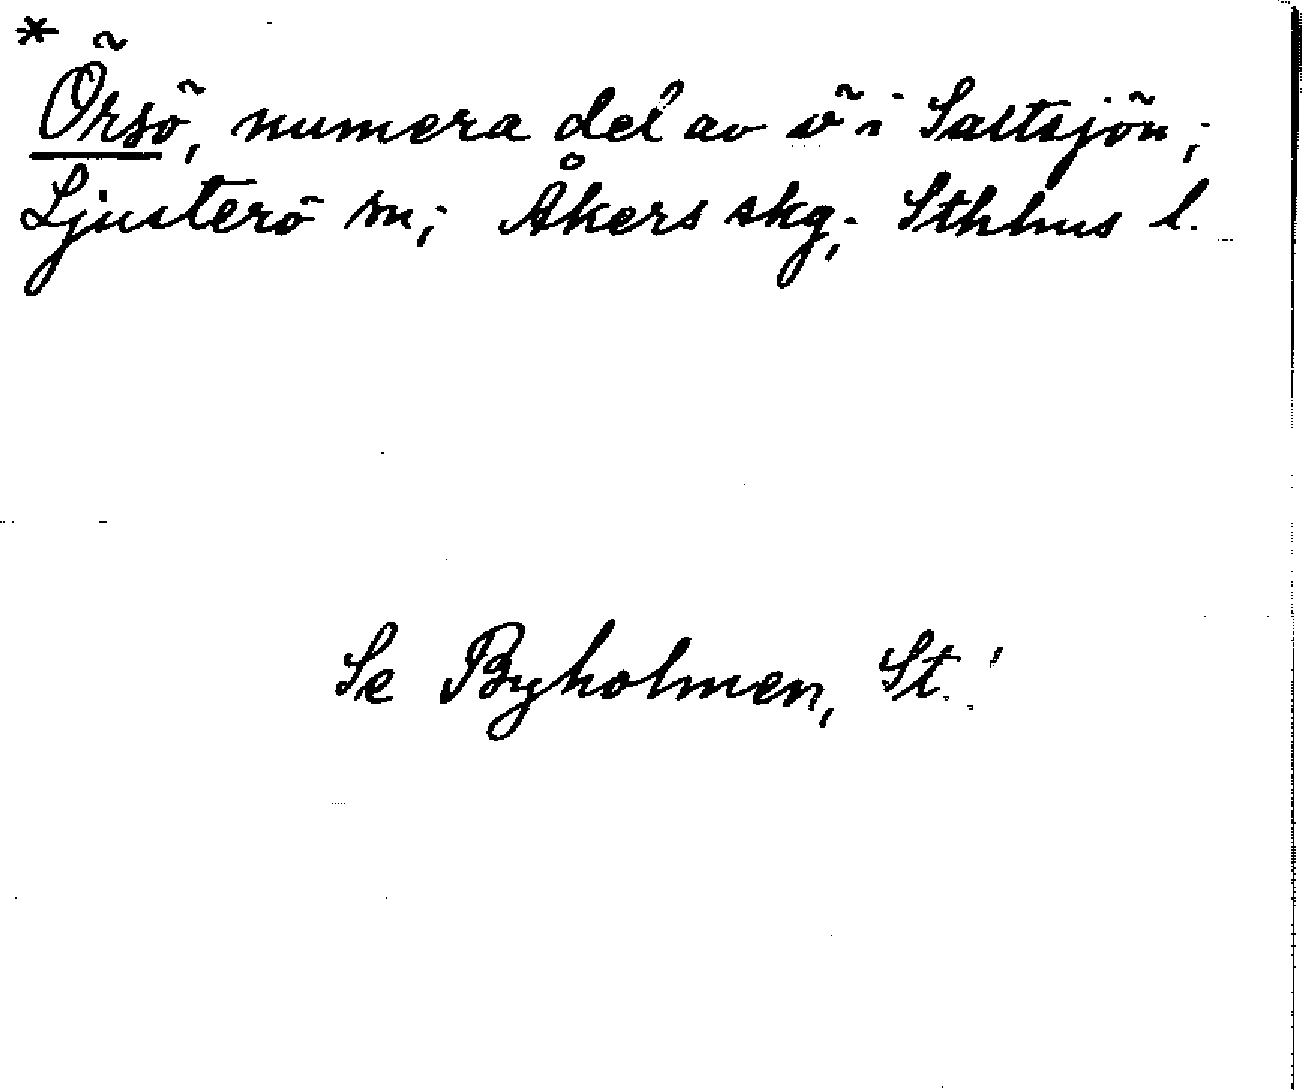 * Örsö, numera del av ö i Saltsjön;
Ljusterö sn; Åkers skg; Sthlms l.
Se Byholmen, St.!